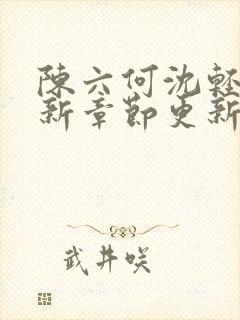 陳六何沈輕
新章節更新
武井咲